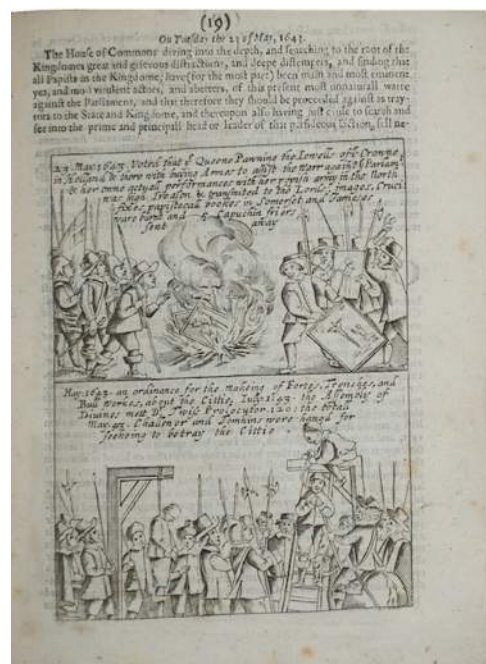 (19)
On Tuesday the 23 of May, 1643.
The House of Commons diving into the depth, and searching to the root of the
Kingdomes great and grievous distractions, and deepe distempers, and finding that
all Papists in the Kingdome, have (for the most part) been main and most eminent
yea, and most virulent actors, and abetters, of this present most unnaturall warre
against the Parliament, and that therefore they should be proceeded against as tray-
tors to the State and Kingdome, and thereupon also having just cause to search and
see into the prime and principall head or leader of this perfideous faction, fell ne-
23 May: 1643. Voted that ye Queens Pawning the Jewells of ye Crowne
in Holland & there with buying Armes to assist the warr against ye Parliamt
& her owne actyall performances with her popish army in the North
was high Treason & transmited to the Lords, images, Cruci
fixes papisticall bookes in Somerset and Jameses
ware burnt and 5 Capuchin friers
sent away
May: 1643. an ordinance for the makeing of Fortes, Trenches, and
Bull workes, about the Cittie, July: 1.43. the Assembly of
Divines mett Dr Twiss Prolocutor. 120: the totall
May. 43. Challenor and Tomkins were hangd for
seekeing to betray the Cittie.